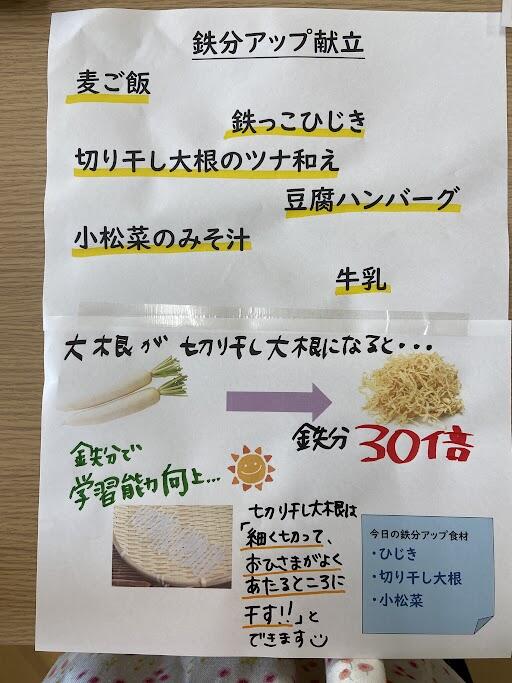 鉄分アップ献立
麦ご飯
鉄っこひじき
切り干し大根のツナ和え
豆腐ハンバーグ
小松菜のみそ汁
牛乳
大根が切り干し大根になると・・・
鉄分30倍
鉄分で
学習能力向上...
切り干し大根は
「細く切って、
おひさまがよく
あたるところに
干す!!」と
できます
今日の鉄分アップ食材
・ひじき
・切り干し大根
・小松菜